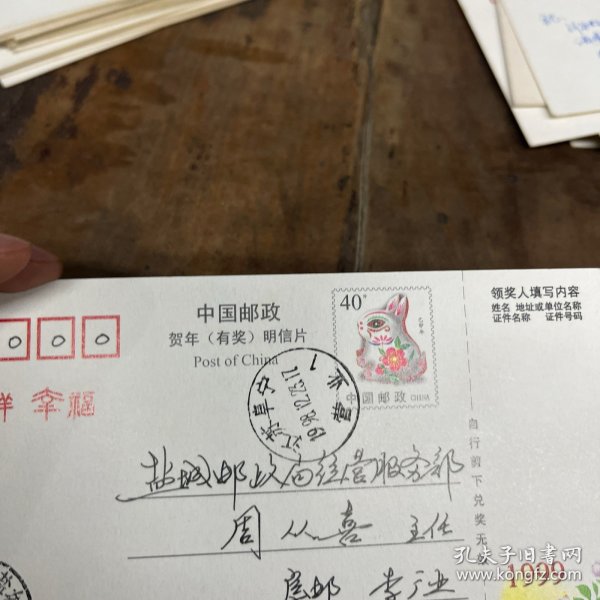 中国邮政
贺年（有奖）明信片
Post of China
40分
己卯年
中国邮政 CHINA
领奖人填写内容
姓名 地址或单位名称
证件名称 证件号码
0 0 0
祥 幸福
江苏阜宁
1998.12.23.17
盐城邮政局经营服务部
周从喜 主任
自行剪下兑奖无效
1999
孔夫子旧书网
www.kongfz.com